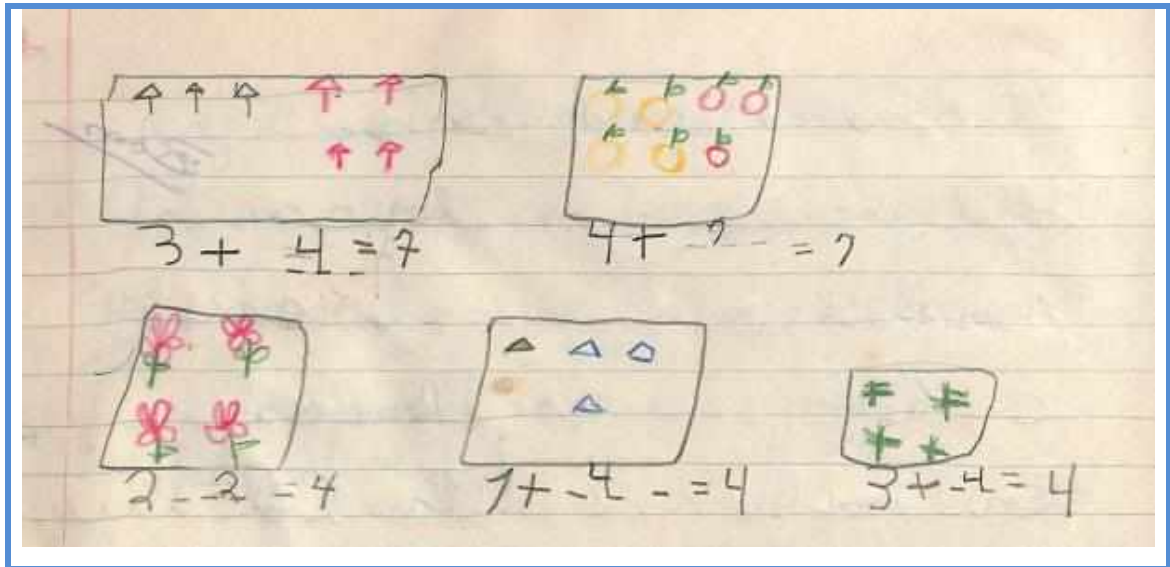 3 + 4 = 7
4 + 7 = 7
2 - 2 = 4
1 + 4 = 4
3 + 4 = 4